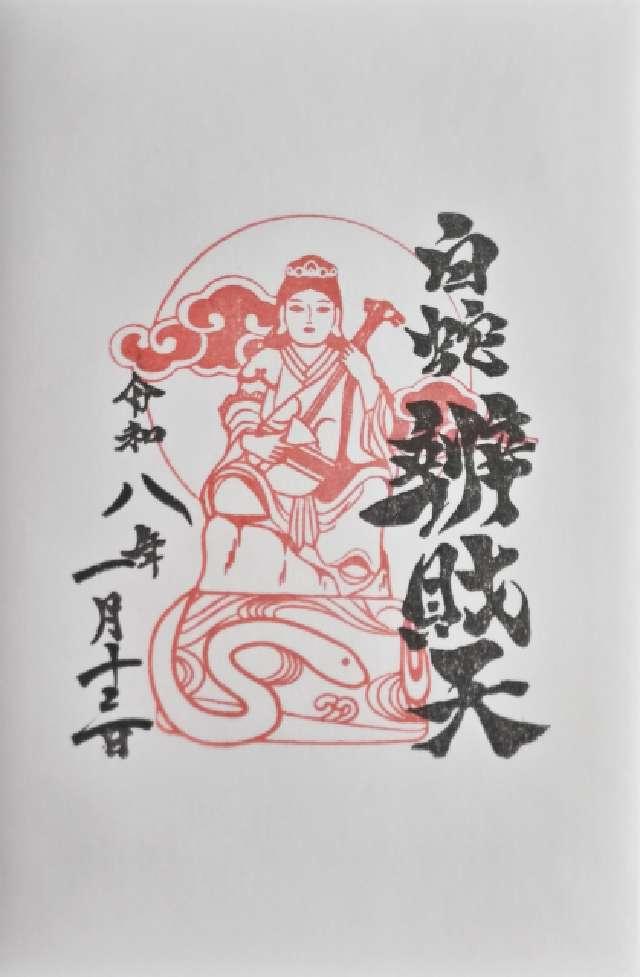 白蛇辨財天
令和八年一月十二日